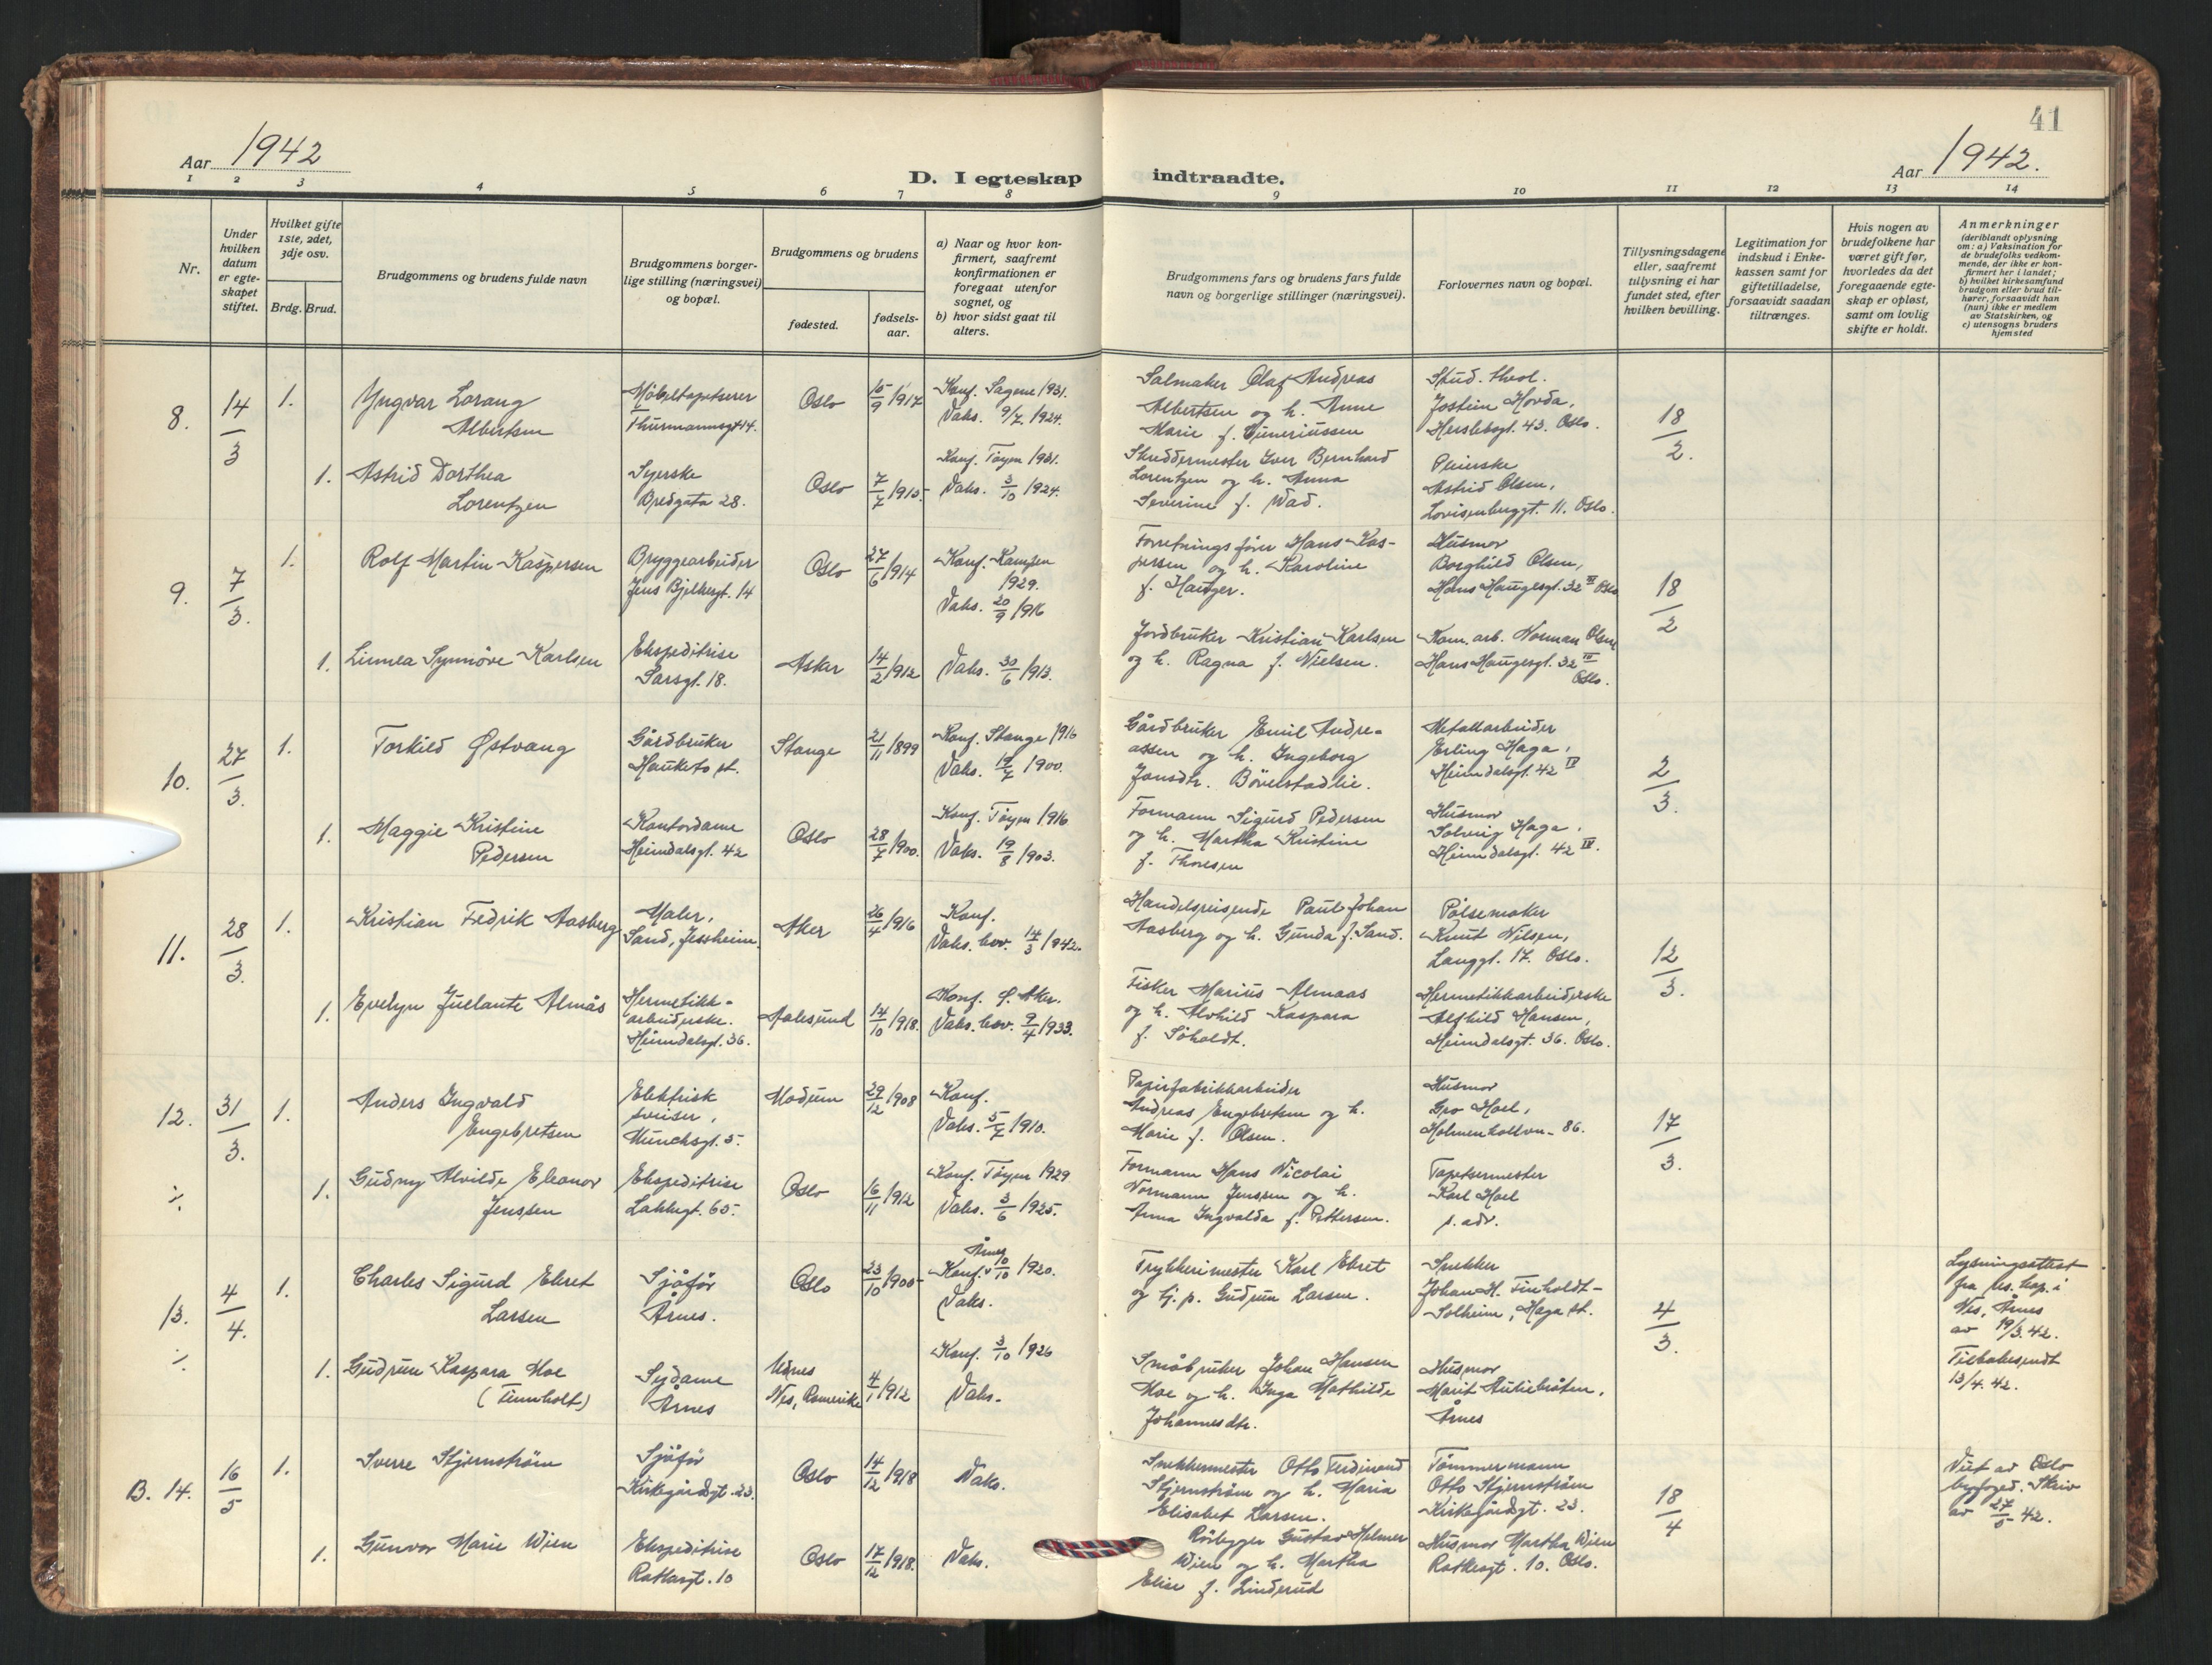 41
Aar 1942
D. I egteskap indtraadte.
Aar 1942.
1 2 3 4 5 6 7 8 9 10 11 12 13 14
Nr.
Under
hvilken
datum
er egte-
skapet
stiftet.
Hvilket gifte
1ste, 2det,
3dje osv.
Brdg. Brud.
Brudgommens og brudens fulde navn
Brudgommens borger-
lige stilling (næringsvei)
og bopæl.
Brudgommens og brudens
fødested.
fødsels-
aar.
a) Naar og hvor kon-
firmert, saafremt
konfirmationen er
foregaat utenfor
sognet, og
b) hvor sidst gaat til
alters.
Brudgommens fars og brudens fars fulde
navn og borgerlige stillinger (næringsvei).
Forlovernes navn og bopæl.
Tillysningsdagene
eller, saafremt
tillysning ei har
fundet sted, efter
hvilken bevilling.
Legitimation for
indskud i Enke-
kassen samt for
giftetilladelse,
forsaavidt saadan
tiltrænges.
Hvis nogen av
brudefolkene har
været gift før,
hvorledes da det
foregaaende egte-
skap er opløst,
samt om lovlig
skifte er holdt.
Anmerkninger
(deriblandt oplysning
om: a) Vaksination for
de brudefolks vedkom-
mende, der ikke er kon-
firmert her i landet;
b) hvilket kirkesamfund
brudgom eller brud til-
hører, forsaavidt han
(hun) ikke er medlem
av Statskirken, og
c) utensogns bruders
hjemsted
8.
14/3
1.
Yngvar Lorang
Albertsen
Møbeltapetserer
Thurmannsgt 14.
Oslo
15/9 1917
Konf. Sagene 1931.
Vaks. 9/7 1924.
Salmaker Olaf Andreas
Albertsen og h. Anne
Marie f. Guneriussen
Stud. theol.
Jostein Hovda,
Herslebsgt. 43. Oslo.
18/2.
1.
Astrid Dorthea
Lorentzen
Syerske
Bredgata 28.
Oslo
7/7 1915.
Konf. Tøyen 1931.
Vaks. 3/10 1924.
Skreddermester Iver Bernhard
Lorentzen og h. Anna
Severine f. Wad.
Pleierske
Astrid Olsen,
Lovisenberggt. 11. Oslo.
9.
7/3.
1.
Rolf Martin Kaspersen
Bryggearbeider
Jens Bjelkesgt. 14
Oslo
27/6 1914
Konf. Kampen
1929.
Vaks. 20/9 1916
Forretningsfører Hans Kas-
persen og h. Karoline
f. Hauger.
Husmor
Borghild Olsen,
Hans Haugesgt. 32 III Oslo
18/2
1.
Linnea Synnøve Karlsen
Ekspeditrise
Sarsgt. 18.
Asker
14/2 1912
Vaks. 30/6 1913.
Jordbruker Kristian Karlsen
og h. Ragna f. Nielsen.
Kom. arb. Norman Olsen
Hans Haugesgt. 32 III
Oslo.
10.
27/3.
1.
Torkild Østvang
Gårdbruker
Hauketo st.
Stange
21/11 1899
Konf. Stange 1916
Vaks. 19/7 1900.
Gårdbruker Emil Andre-
assen og h. Ingeborg
Jonsdtr. Bövelstadlie.
Metallarbeider
Erling Haga,
Heimdalsgt. 42 IV
2/3.
1.
Maggie Kristine
Pedersen
Kontordame
Heimdalsgt. 42
Oslo
28/7 1900.
Konf. Tøyen 1916
Vaks. 19/8 1903.
Formann Sigurd Pedersen
og h. Martha Kristine
f. Thoresen
Husmor
Solveig Haga,
Heimdalsgt. 42 IV.
11.
28/3.
1.
Kristian Fedrik Aasberg
Maler,
Sand, Jessheim.
Aker
26/4 1916
Konf.
Vaks. bev. 14/3 1942.
Handelsreisende Paul Johan
Aasberg og h. Gunda f. Sand.
Pølsemaker
Knut Nilsen,
Langgt. 17. Oslo.
12/3.
1.
Evelyn Juelante Almås
Hermetikk-
arbeiderske.
Heimdalsgt. 36.
Aalesund
14/10 1918.
Konf. Ø. Aker.
Vaks. bev. 9/4 1933.
Fisker Marius Almaas
og h. Alvhild Kaspara
f. Söholdt.
Hermetikkarbeiderske
Alfhild Hansen,
Heimdalsgt. 36. Oslo.
12.
31/3.
1.
Anders Ingvald
Engebretsen
Elektrisk
sveiser,
Munchsgt. 5.
Modum
29/12 1908
Konf.
Vaks. 5/7 1910.
Papirfabrikkarbeider
Andreas Engebretsen og h.
Marie f. Olsen.
Husmor
Gro Hoel,
Holmenkollvn. 86.
17/3.
÷
1.
Gudny Alvilde Eleonor
Jenssen
Ekspeditrise
Lakkegt. 65.
Oslo
16/11 1912
Konf. Tøyen 1929
Vaks. 3/6 1925.
Formann Hans Nicolai
Normann Jenssen og h.
Anna Ingvalda f. Pettersen.
Tapetsermester
Karl Hoel
s. adr.
13.
4/4.
÷
1.
Charles Sigurd Ekret
Larsen
Sjåfør
Årnes.
Oslo
23/10 1900
Årnes
Konf. 10/10 1920.
Vaks.
Trykkerimester Karl Ekret
og tj. p. Gudrun Larsen.
Snekker
Johan H. Finholdt-
Solheim, Haga st.
4/3.
Lysningsattest
fra res. kap. i
Nes, Årnes
av 19/3.42.
Tilbakesendt
13/4.42.
1.
Gudrun Kaspara Moe
(Finnholt)
Sydame
Årnes
Udnes
Nes, Romerike
4/1 1912
Konf. 3/10 1926
Vaks.
Småbruker Johan Hansen
Moe og h. Inga Mathilde
Johannesdtr.
Husmor
Marit Auliebråten,
Årnes
B. 14.
16/5
1.
Sverre Stjernstrøm
Sjåfør
Kirkegårdsgt. 23.
Oslo
14/12 1918
Vaks.
Snekkermester Otto Ferdinand
Stjernstrøm og h. Maria
Elisabet Larsen.
Tømmermann
Otto Stjernstrøm
Kirkegårdsgt. 23.
18/4
Viet av Oslo
byfoged. Skriv
av 27/5 42.
1.
Gunvor Marie Wien
Ekspeditrise
Rathkesgt. 10
Oslo
17/12 1918.
Vaks.
Rørlegger Gustav Helmer
Wien og h. Martha
Elise f. Linderud
Husmor Martha Wien
Rathkesgt. 10. Oslo.